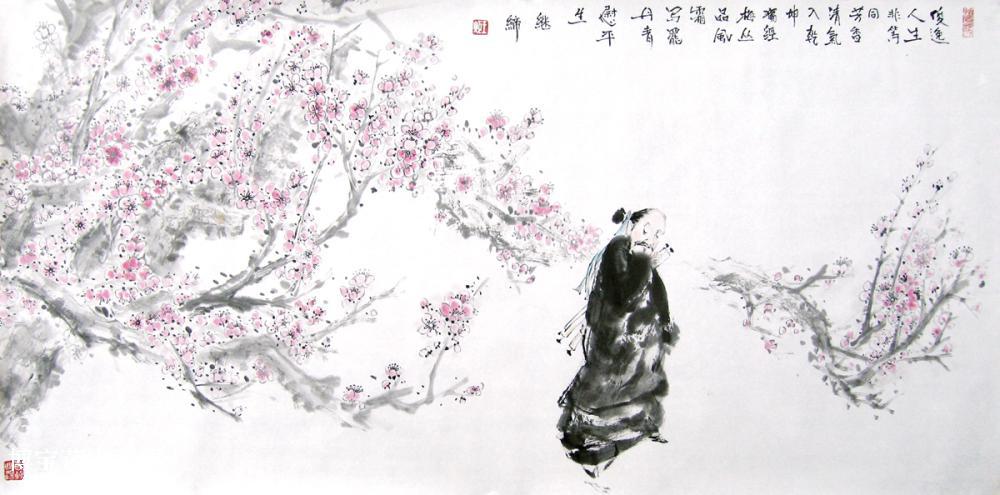 俊逸
人生
非等
同
芳香
清氣
入乾
坤
獨經
梅丛
品風
霜
写罷
丹青
慰平
生